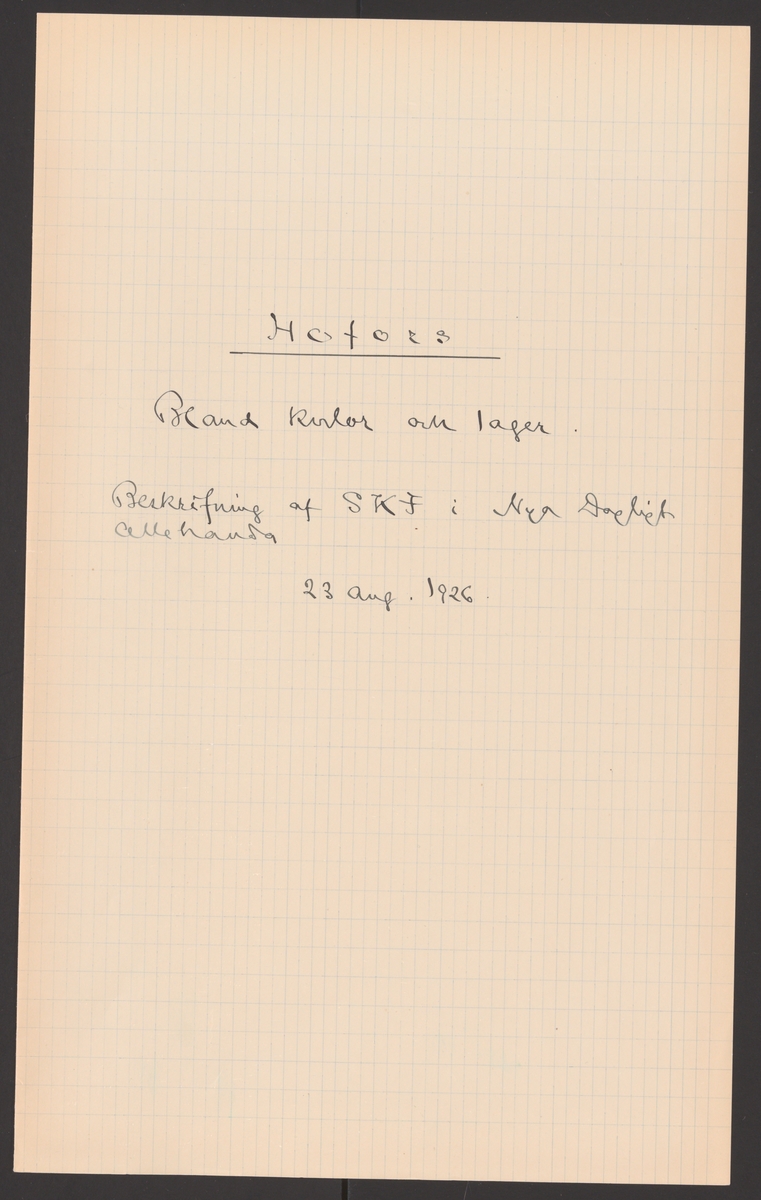 Hofors
Bland kulor och lager.
Beskrifning af SKF i Nya Dagligt
Allehanda
23 Aug. 1926.